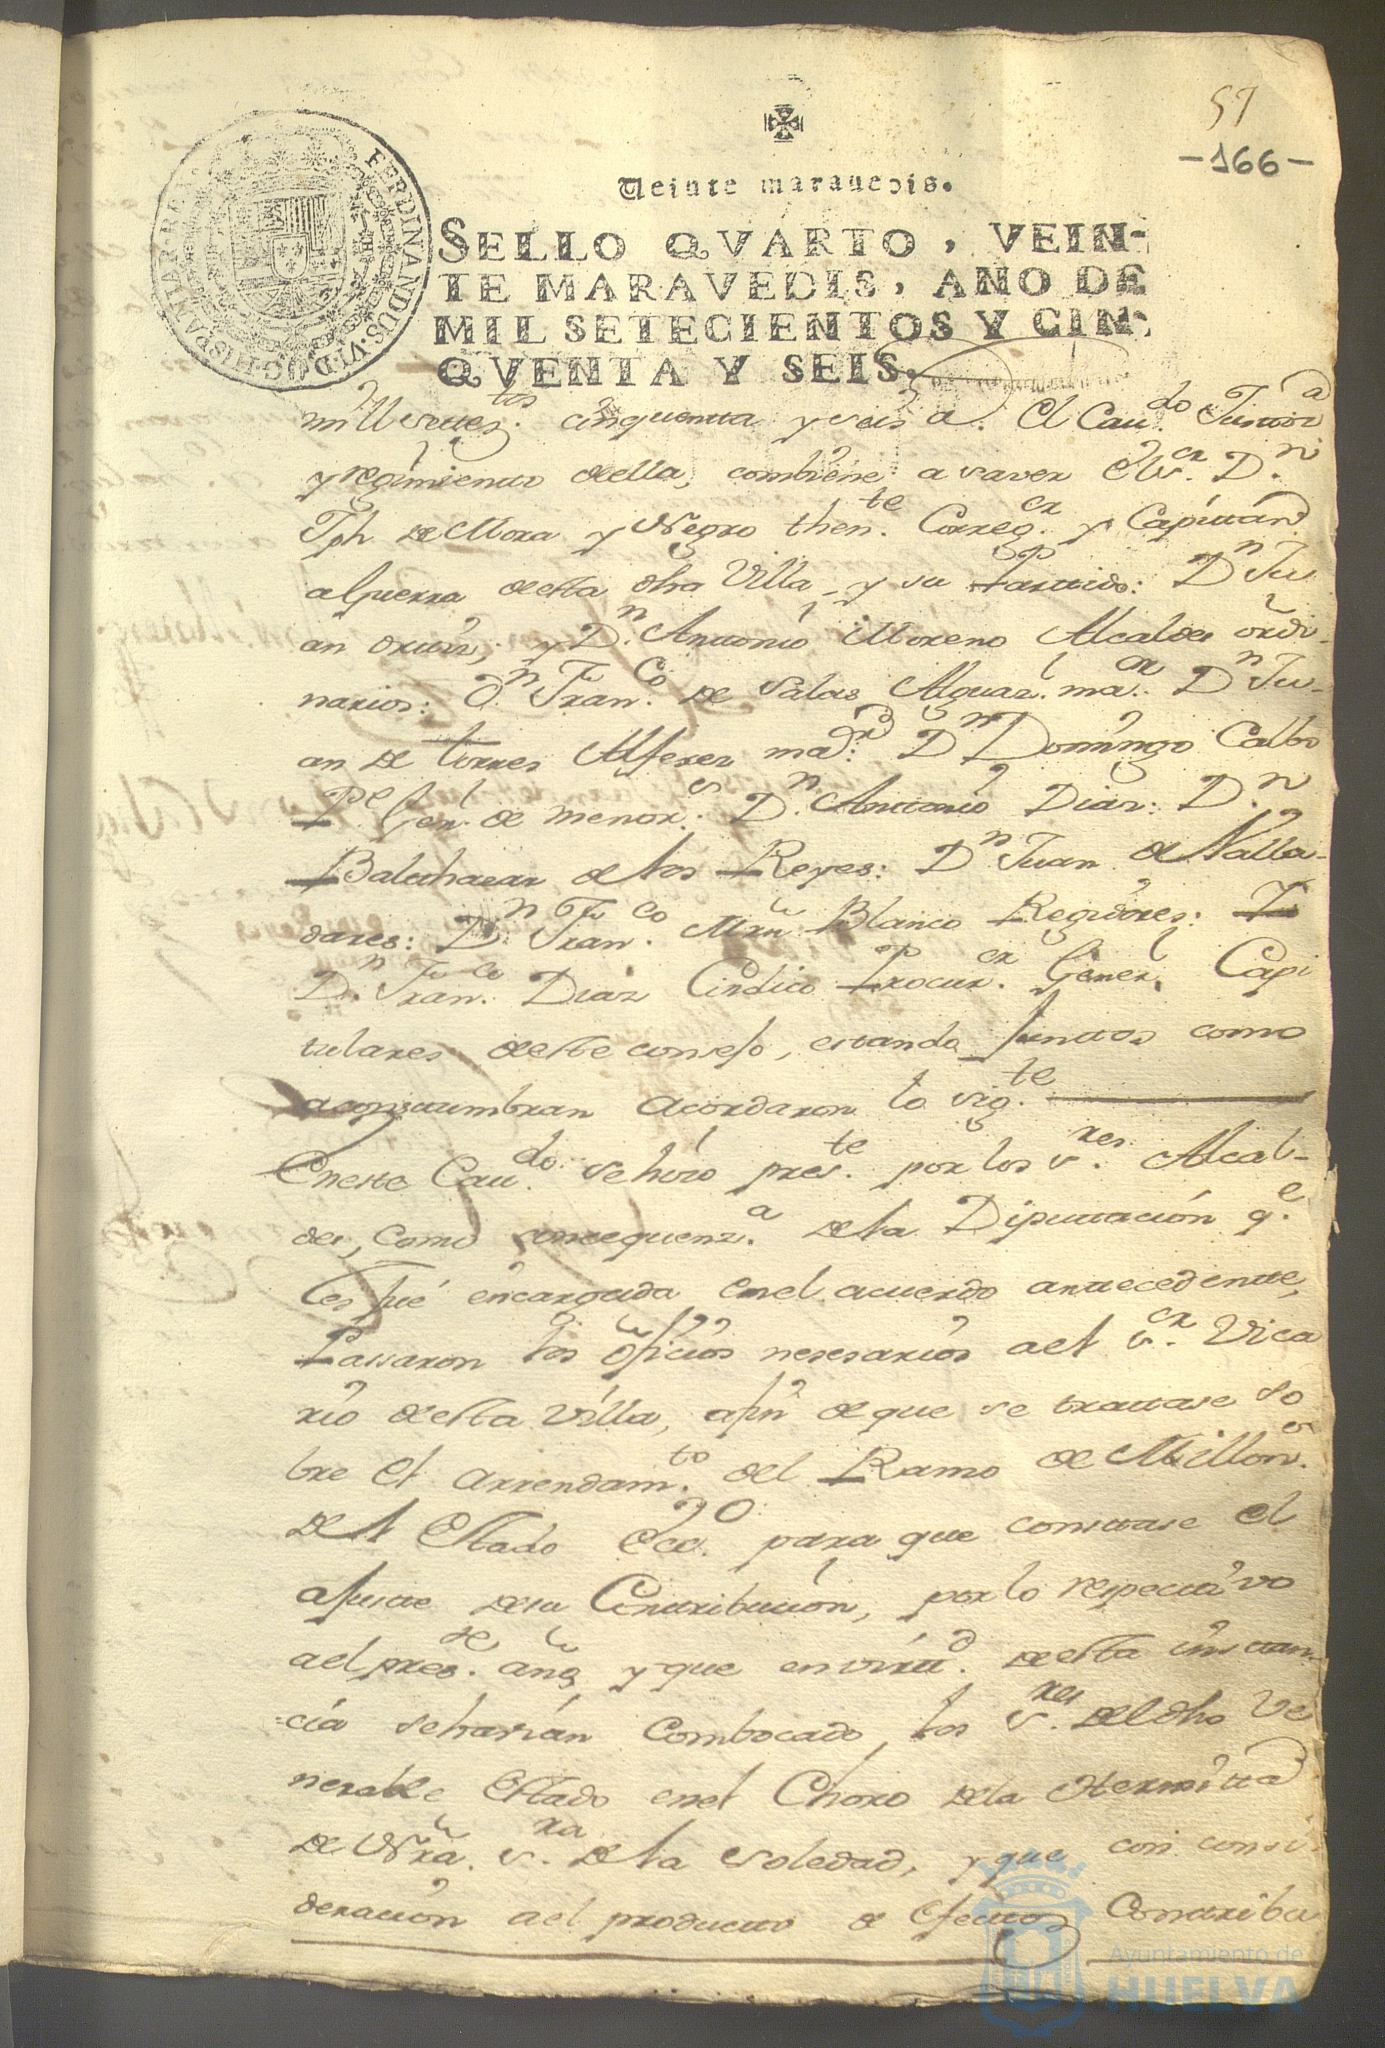 57
-166-
Veinte maravedis.
SELLO QVARTO, VEIN-
TE MARAVEDIS, AÑO DE
MIL SETECIENTOS Y CIN-
QVENTA Y SEIS.
FERDINANDUS.VI.D.G.HISPANIAR.REX
mill settez.tos cinquentta y seis a. El Cau.do Justizi.a
y regimiento della, combiene a saver el S.or D.n
Jph de Mora y Negro then.te Correg.or y Capittan
a Guerra desta dha Villa, y su Parttido: D.n Ju
an ortiz; y D.n Anttonio Moreno Alcaldes ordi-
narios: D.n Fran.co de Salas Alguaz.l ma.or D.n Ju-
an de torres Alferez ma.or D.n Domingo Calbo
P.e Gen.l de menor.s D.n Anttonio Diaz: D.n
Balthazar de los Reyes: D.n Juan de Valla-
dares: D.n Fran.co Mrn Blanco Regidores:
D.n Fran.co Diaz Cindico Procur.or Gener.l Capi
tulares deste consejo, estando junttos como
aconstumbran acordaron lo sig.te
Eneste Cau.do se hizo pres.te por los s.res Alcal-
des, como consequenz.a de la Diputtacion q.e
les fué encargada enel acuerdo anttecedentte,
Passaron los oficios nesesarios ael s.or Vica
rio desta Villa, afin de que se trattase so
bre el arrendam.to del Ramo de Millon.s
del Estado Ecc.co para que consttase el
ajustte desu Contribucion, por lo respectivo
ael pres.te año, y que en virtt.d desta insttan-
cia sehavian Combocado, los s.res del dho Ve
nerable Estado enel Choro dela Hermitta
de Nra. s.ra de la Soledad, y que con consi-
deracion ael productto de efecttos Conttribu
Ayuntamiento de
HUELVA